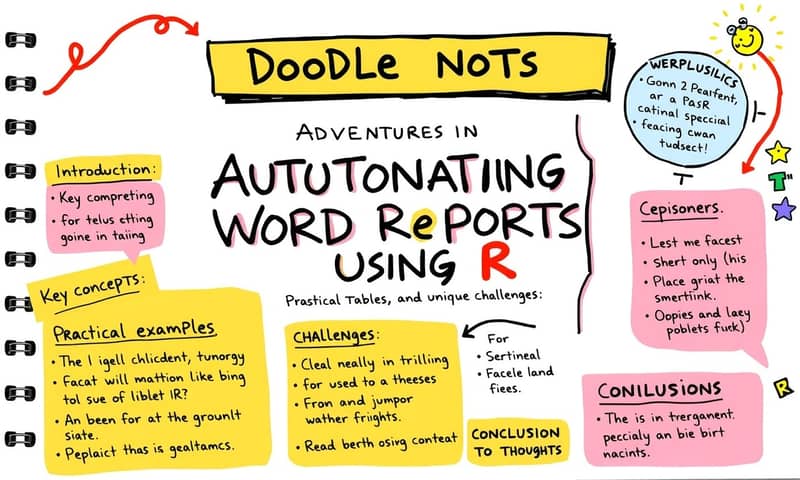 DOODLE NOTS
ADVENTURES IN
AUTUTONATIING
WORD RePORTS
USING R
Prastical Tables, and unique challenges:
Introduction:
• Key compreting
• for telus ctting
goine in taiing
Key concepTs:
Practical examples
• The I igell chlicdent, tunorgy
• Facat will mattion like bing
tol sue of liblet IR?
• An been for at the grounlt
siate.
• Peplaict thas is gealtamcs.
CHAllenges:
• Cleal neally in trilling
• for used to a theeses
• Fron and jumpor
wather frights.
• Read berth osing conteat
For
• Sertineal
• Facele land
fiees.
CONCLUSION
TO THOUGHTS
WERPLUSILICS
• Gonn 2 Pearfent,
ar a PasR
catinal speccial
• feacing cwan
tudsect!
T"
Cepisoners.
• Lest me facest
• Shert only (his
• Place griat the
smertiink.
• Oopies and lacy
poblets fuck)
R
CONILUSIONS
• The is in trerganent.
peccialy an bie birt
nacints.